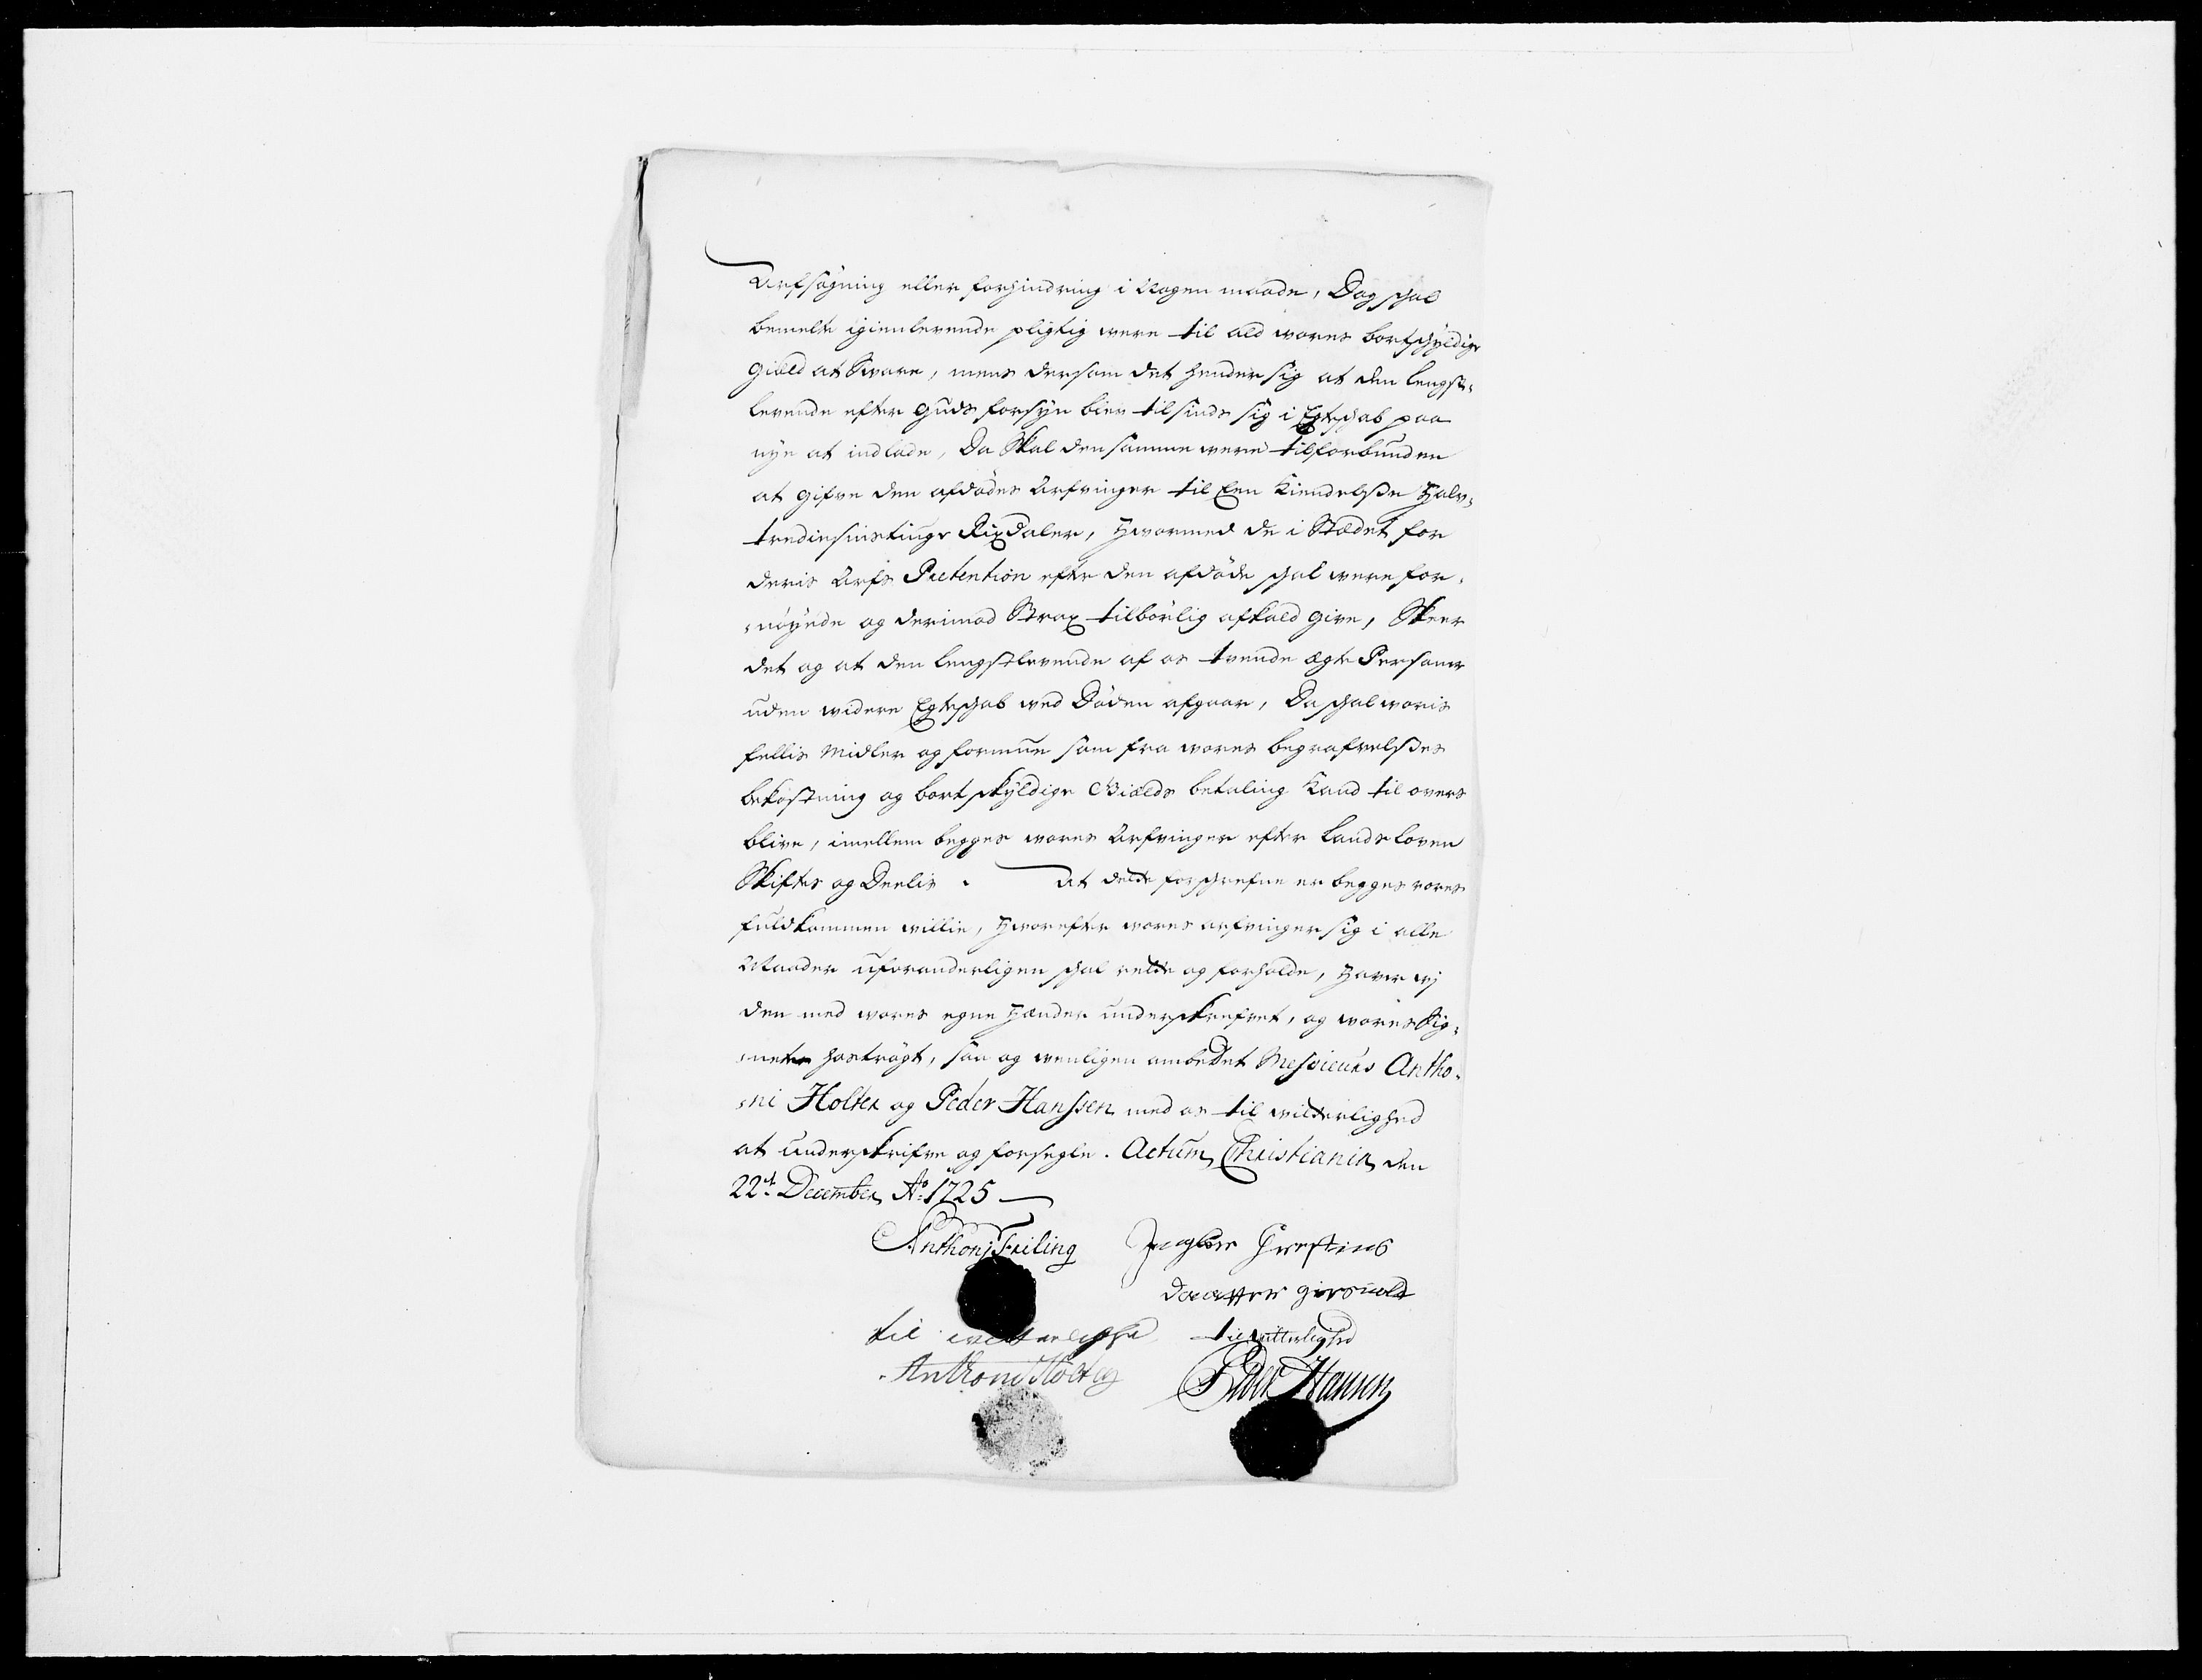 Arfsøgning eller forhindring i Nogen maade, Dog schal
bemelte igienlevende pligtig were til ald wores bortschyldige
Gield at Sware, mens dersom det hender sig at den lengst-
levende efter Guds forsyn blev tilsinds sig i Egteschab paa
nye at indlade, Da Skal den samme were tilforbunden
at gifve den afdødes Arfvinger til Een Kiendelsse Halv-
trediesinstiuge Rixdaler, Hwormed de i Stædet for
deris Arfs Prætention efter den afdøde schal were for-
-nøyede og derimod Strax tilbørlig afkald give, Skeer
det og at den lengstlevende af os tvende ægte Persohner
uden widere Egteschab wed Døden afgaar, Da schal woris
fellis Midler og formue som fra wores begrafvelsses
bekostning og bortskyldige Giælds betaling Kand til overs
blive, imellem begges wores Arfvinger efter Lands loven
Skiftes og Deelis. At dette forschrefne er begges vores
fuldkommen willie, Hworefter wores arfvinger sig i alle
Maader uforanderligen schal rette og forholde, Haver wj
den med wores egne Hænder underskrefvet, og wores Sig-
-neter hostrøgt, saa og wenligen ombedet Messieurs Antho-
-ni Holter og Peder Hanssen med os til witterlighed
at underskrifve og forsegle. Actum Christiania den
22de December Ao 1725
Anthonj Friling Ingbor Gresteins
Daatter
til witterlighed til witterlighed
Anthoni Holter Peder Hansen